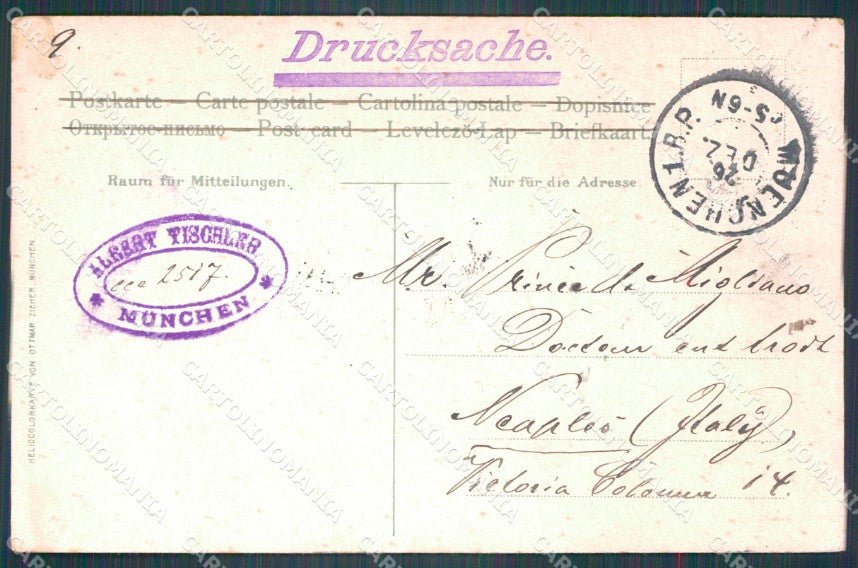 9.
Drucksache.
Postkarte — Carte postale — Cartolina postale — Dopisnice
Открытое письмо — Post card — Levelezö-Lap — Briefkaart
Raum für Mitteilungen.
Nur für die Adresse.
MUENCHEN 1. B.P.
26 DEZ.
5-6N
ALBERT TISCHLER
2517.
* MÜNCHEN *
Mr. Prince de Migliano
Docteur
Neaples (Italy),
Victoria Colonna 14.
HELIOCOLORKARTE VON OTTMAR ZIEHER, MÜNCHEN
CARTOLINOMANIA